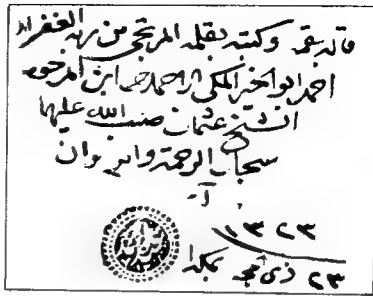 قاله بفمه وكتبه بقلمه المرتجى من ربه الغفران
احمد ابو الخير المكى بن احمد ابن المرحوم
الشيخ عثمان صب الله عليهما
سجال الرحمة والرضوان
١٣٢٣
٢٣ ذى الحجه